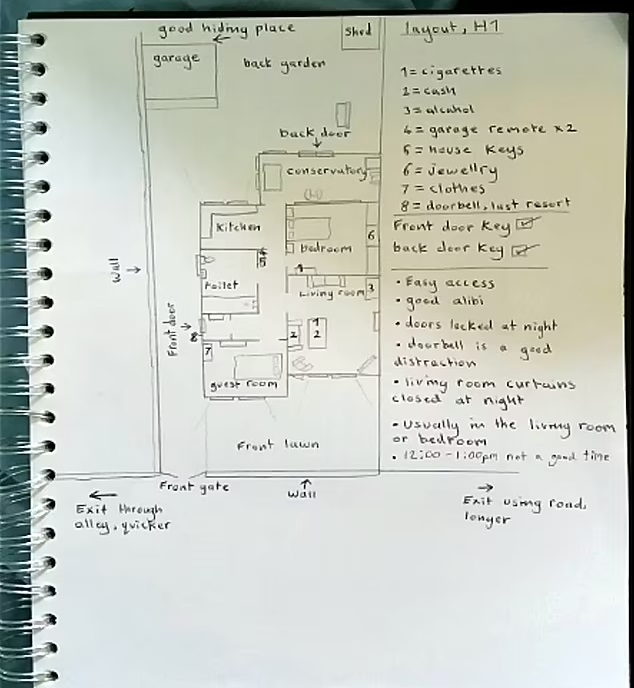 good hiding place
shed
layout, H1
garage
back garden
1 = cigarettes
2 = cash
3 = alcohol
4 = garage remote x2
5 = house keys
6 = jewellry
7 = clothes
8 = doorbell, last resort
Front door key ☑
back door key ☑
back door
conservatory
kitchen
bedroom
6
5
4
toilet
Living room
3
Wall
Front door
8
1
2
2
7
guest room
Front lawn
• Easy access
• good alibi
• doors locked at night
• doorbell is a good
distraction
• living room curtains
closed at night
• usually in the living room
or bedroom
• 12:00 - 1:00pm not a good time
Front gate
Wall
Exit through
alley, quicker
Exit using road,
longer